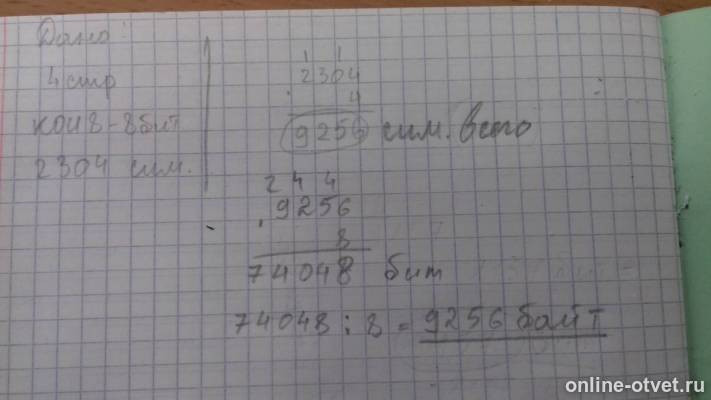 Дано:
4 стр
КОИ8-8бит
2304 сим.
1 1
2304
4
9256 сим. всего
2 4 4
9256
8
74048 бит
74048 : 8 = 9256 байт
online-otvet.ru